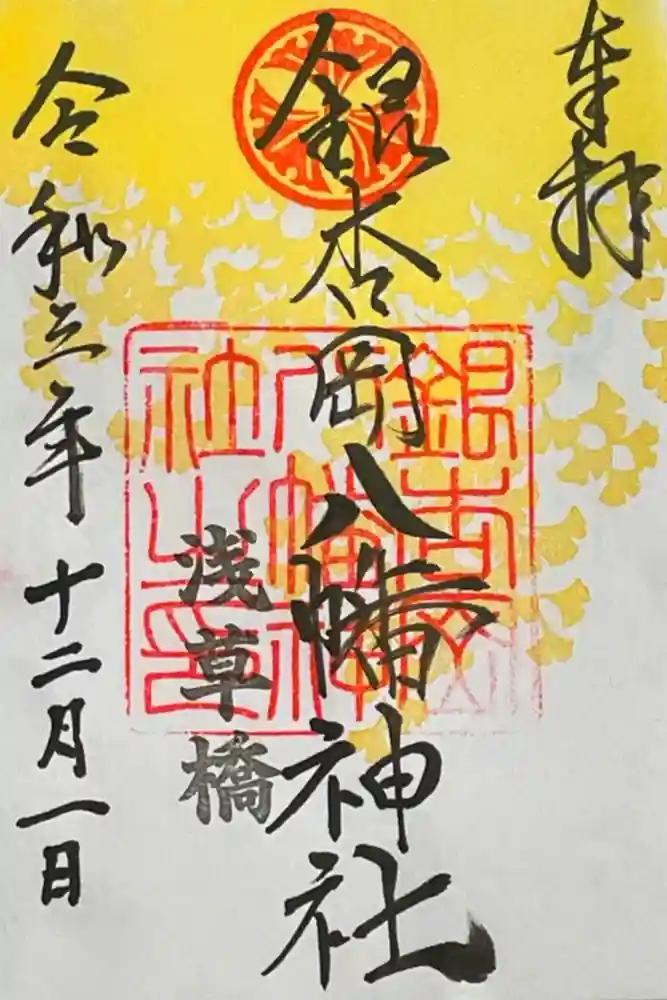 奉拝
銀杏岡八幡神社
銀杏岡八幡神社之印
浅草橋
令和三年十二月一日